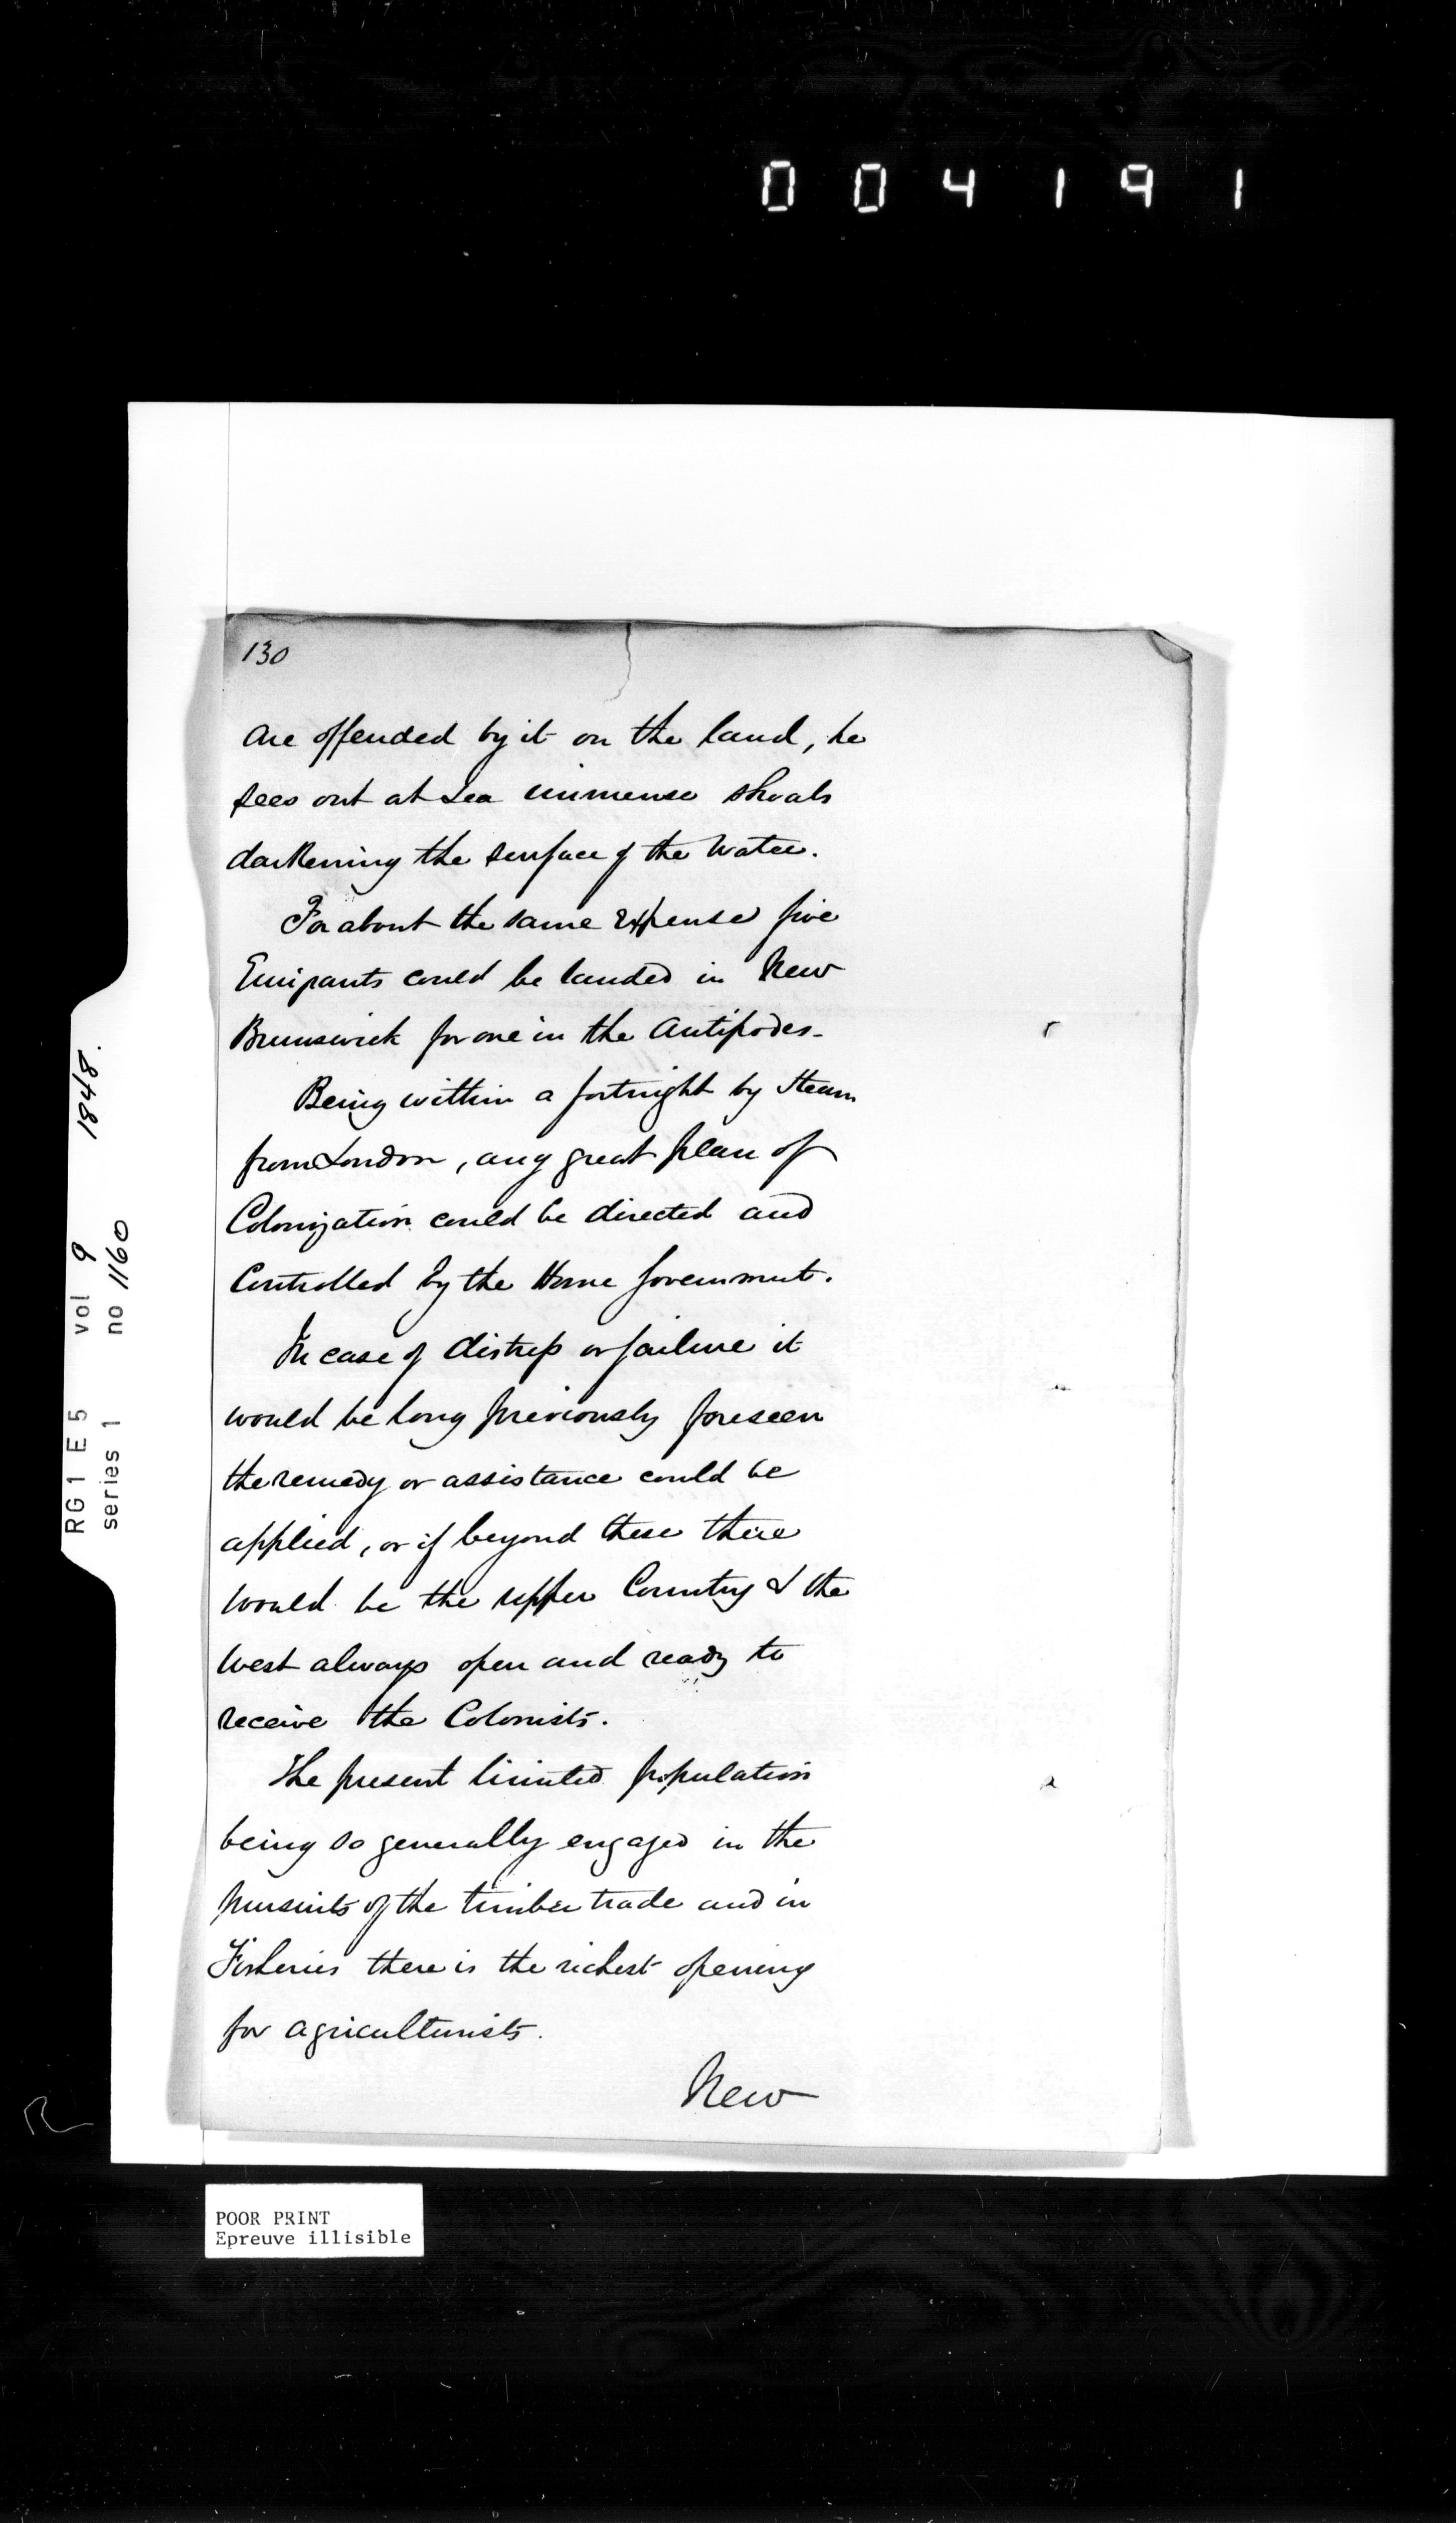 004191
130
are offended by it on the land, he
sees out at Sea immense shoals
darkening the surface of the Water.
For about the same expense five
Emigrants could be landed in New
Brunswick for one in the Antipodes.
Being within a fortnight by Steam
from London, any great plan of
Colonization could be directed and
Controlled by the Home Government.
In case of distress or failure it
would be long previously foreseen
the remedy or assistance could be
applied, or if beyond these there
would be the upper Country & the
West always open and ready to
receive the Colonists.
The present limited population
being so generally engaged in the
pursuits of the timber trade and in
Fisheries there is the richest opening
for agriculturists.
New
RG1 E5 vol 9 1848.
series 1 no 1160
POOR PRINT
Epreuve illisible